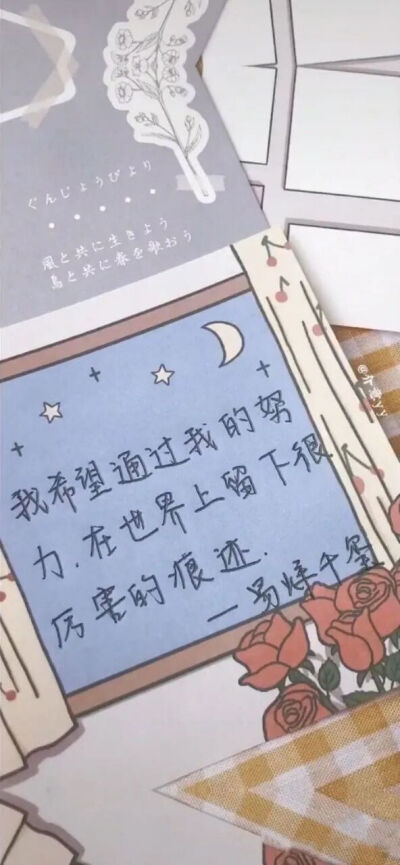 ぐんじょうびより
風と共に生きよう
鳥と共に春を歌おう
我希望通过我的努
力.在世界上留下很
厉害的痕迹.
—易烊千玺